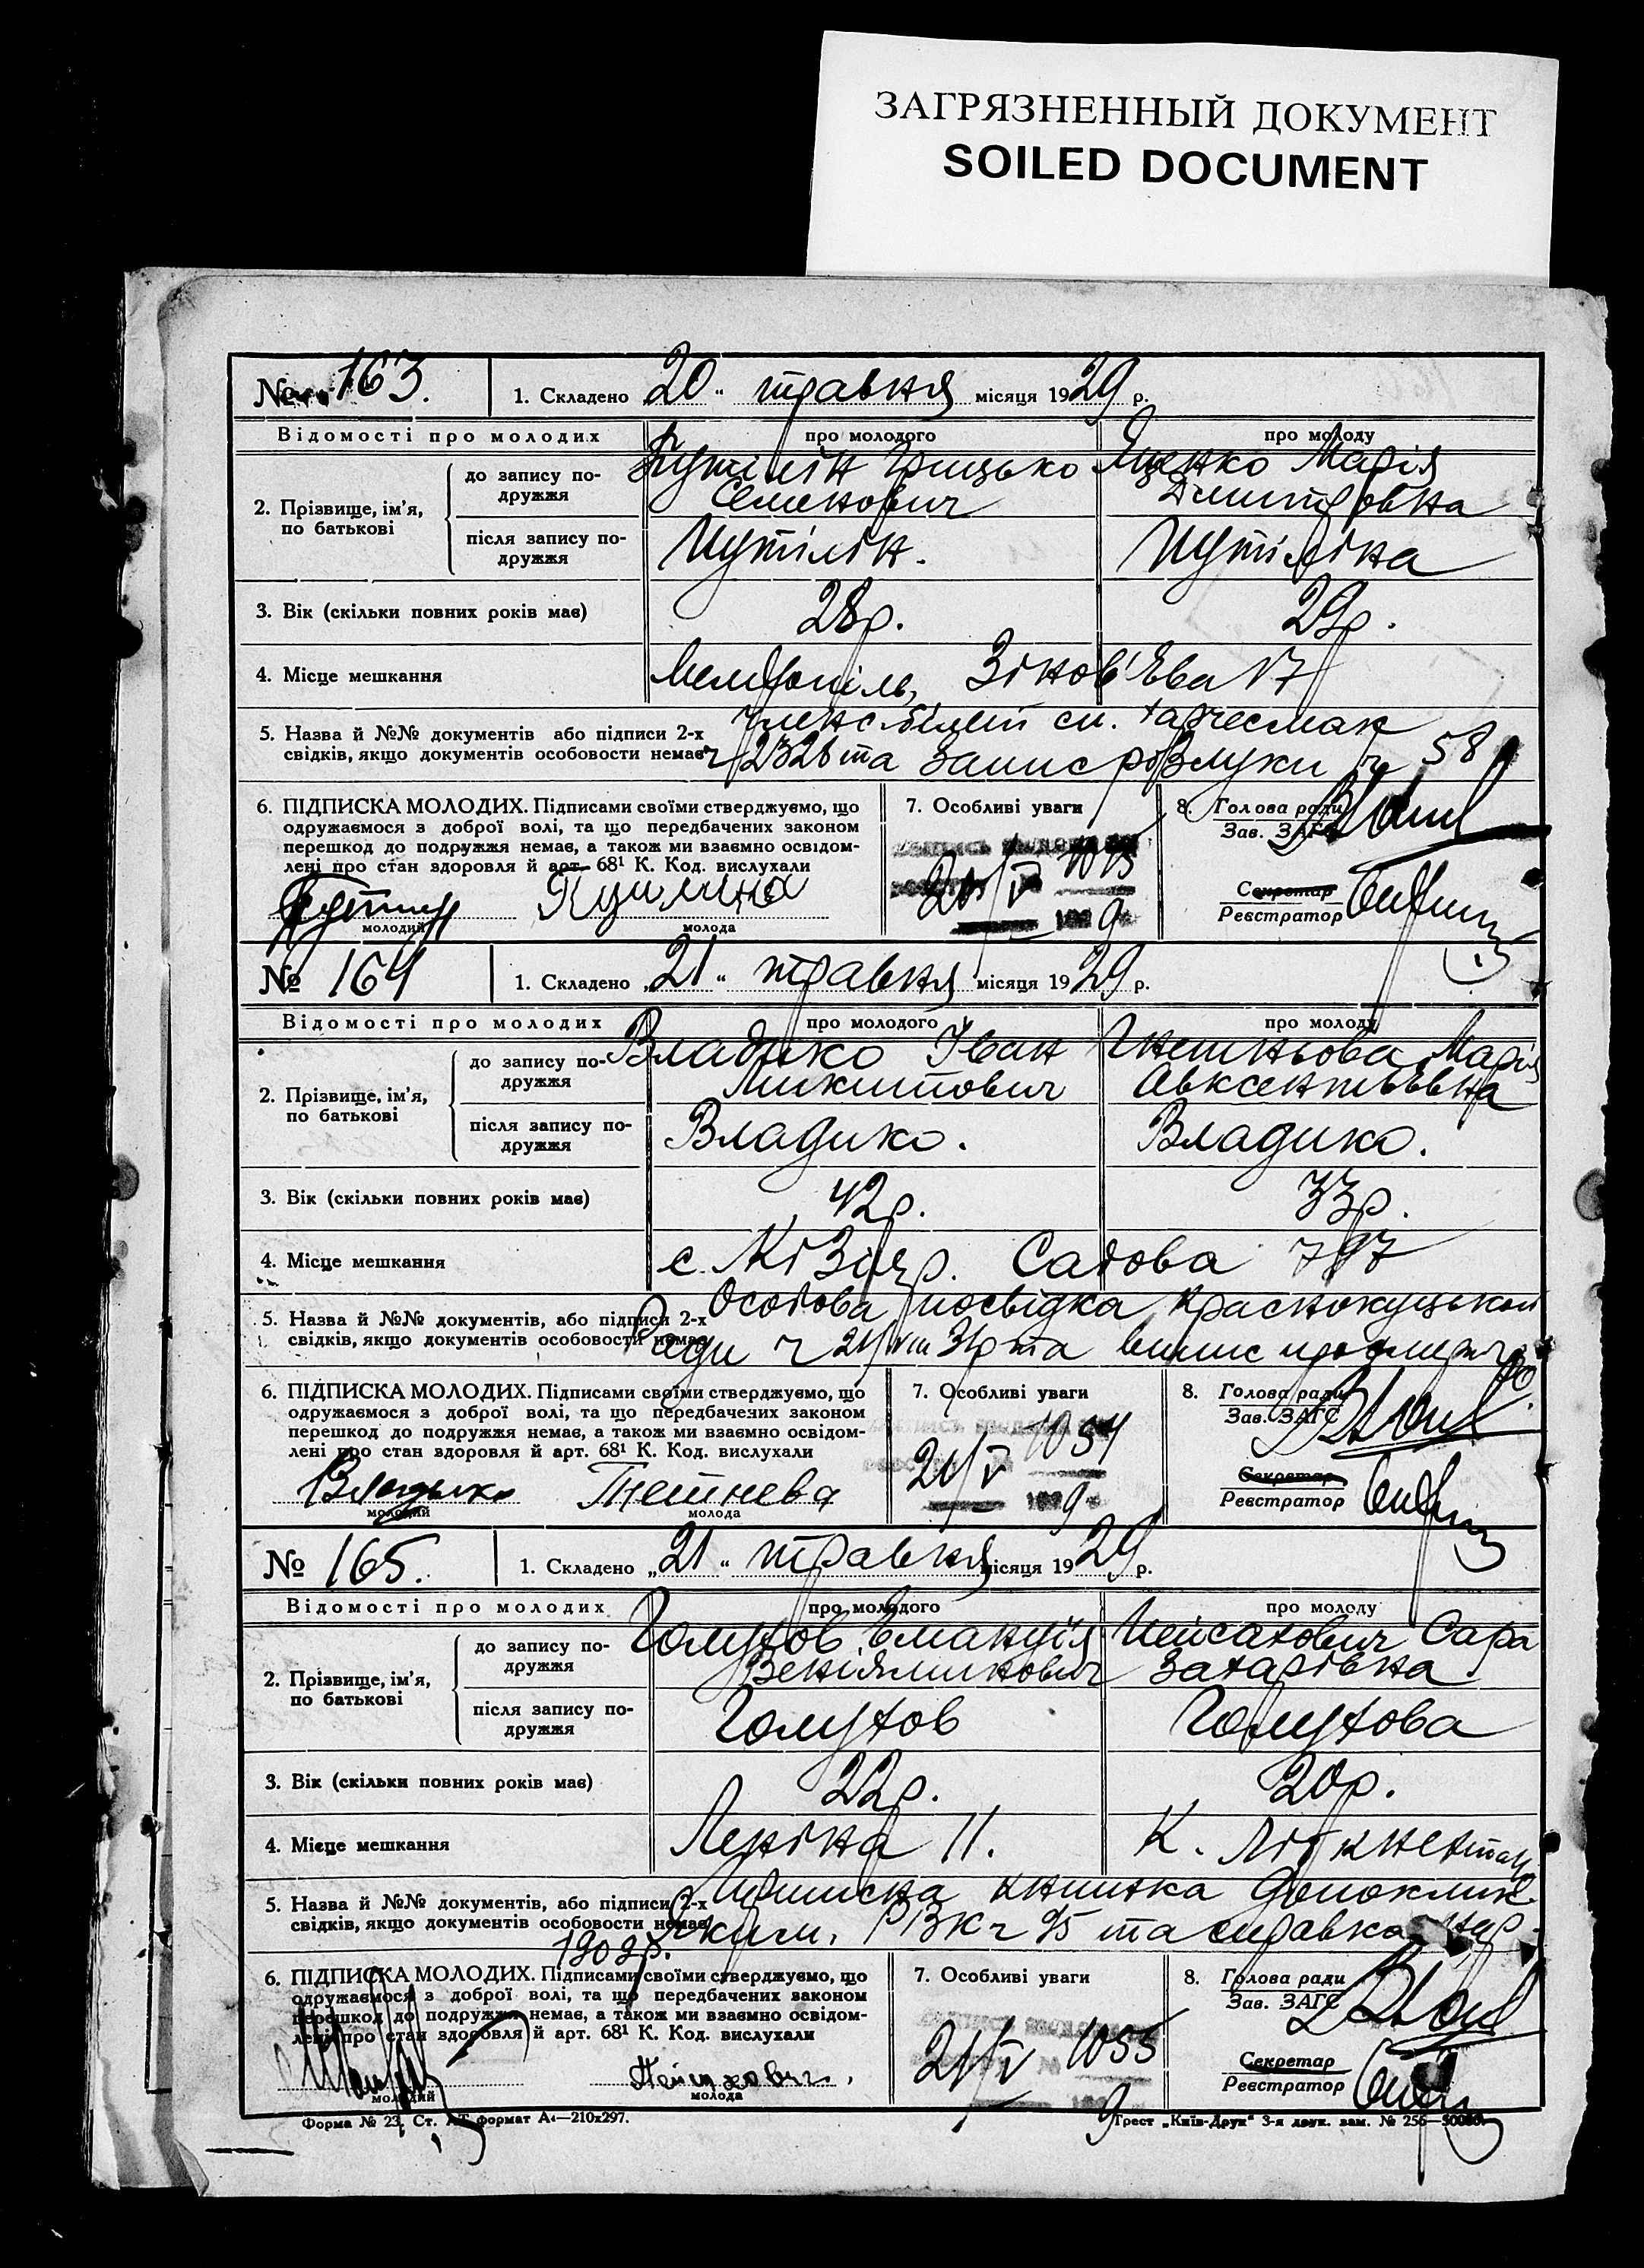 ЗАГРЯЗНЕННЫЙ ДОКУМЕНТ
SOILED DOCUMENT
№ 163.
1. Складено „20“ травня місяця 1929 р.
Відомості про молодих
про молодого
про молоду
2. Прізвище, ім'я, по батькові
до запису по-
дружжя
Путілін Грицько
Семенович
Яценко Марія
Дмитровна
після запису по-
дружжя
Путілін.
Путіліна
3. Вік (скільки повних років має)
28р.
29р.
4. Місце мешкання
Мелітопіль, Зінов'Ева 17
5. Назва й №№ документів або підписи 2-х
свідків, якщо документів особовости немає
та запис розлуки ч 58
6. ПІДПИСКА МОЛОДИХ. Підписами своїми стверджуємо, що
одружаємося з доброї волі, та що передбачених законом
перешкод до подружжя немає, а також ми взаємно освідом-
лені про стан здоровля й арт. 68¹ К. Код. вислухали
молодий
молода
7. Особливі уваги
8. Голова ради
Зав. ЗАГС
Секретар
Реєстратор
№ 164
1. Складено „21“ травня місяця 1929 р.
Відомості про молодих
про молодого
про молоду
2. Прізвище, ім'я,
по батькові
до запису по-
дружжя
Владико Іван
Микитович
Марія
Авксентьевна
після запису по-
дружжя
Владико.
Владико.
3. Вік (скільки повних років має)
42р.
33р.
4. Місце мешкання
с. Кізіяр. Садова 797
5. Назва й №№ документів, або підписи 2-х
свідків, якщо документів особовости немає
Особова посвідка Краснокуцької
Ради ч 21 та випис про смерть
6. ПІДПИСКА МОЛОДИХ. Підписами своїми стверджуємо, що
одружаємося з доброї волі, та що передбачених законом
перешкод до подружжя немає, а також ми взаємно освідом-
лені про стан здоровля й арт. 68¹ К. Код. вислухали
Владыко
молодий
Гнетнева
молода
7. Особливі уваги
21/V 1054
8. Голова ради
Зав. ЗАГС
Секретар
Реєстратор
№ 165.
1. Складено „21“ травня місяця 1929 р.
Відомості про молодих
про молодого
про молоду
2. Прізвище, ім'я,
по батькові
до запису по-
дружжя
Голубов Емануіл
Веніяминович
Пейсахович Сара
Захарівна
після запису по-
дружжя
Голубов
Голубова
3. Вік (скільки повних років має)
22р.
20р.
4. Місце мешкання
Леніна 11.
К. Лібкнехта
5. Назва й №№ документів, або підписи 2-х
свідків, якщо документів особовости немає
Приписна книжка
РВК ч 95 та справка
1909р.
6. ПІДПИСКА МОЛОДИХ. Підписами своїми стверджуємо, що
одружаємося з доброї волі, та що передбачених законом
перешкод до подружжя немає, а також ми взаємно освідом-
лені про стан здоровля й арт. 68¹ К. Код. вислухали
молодий
Пейсахович.
молода
7. Особливі уваги
21/V 1055
8. Голова ради
Зав. ЗАГС
Секретар
Реєстратор
Форма № 23. Ст. АТ формат А₄—210х297.
Трест „Київ-Друк“ 3-я друк. зам. № 256—